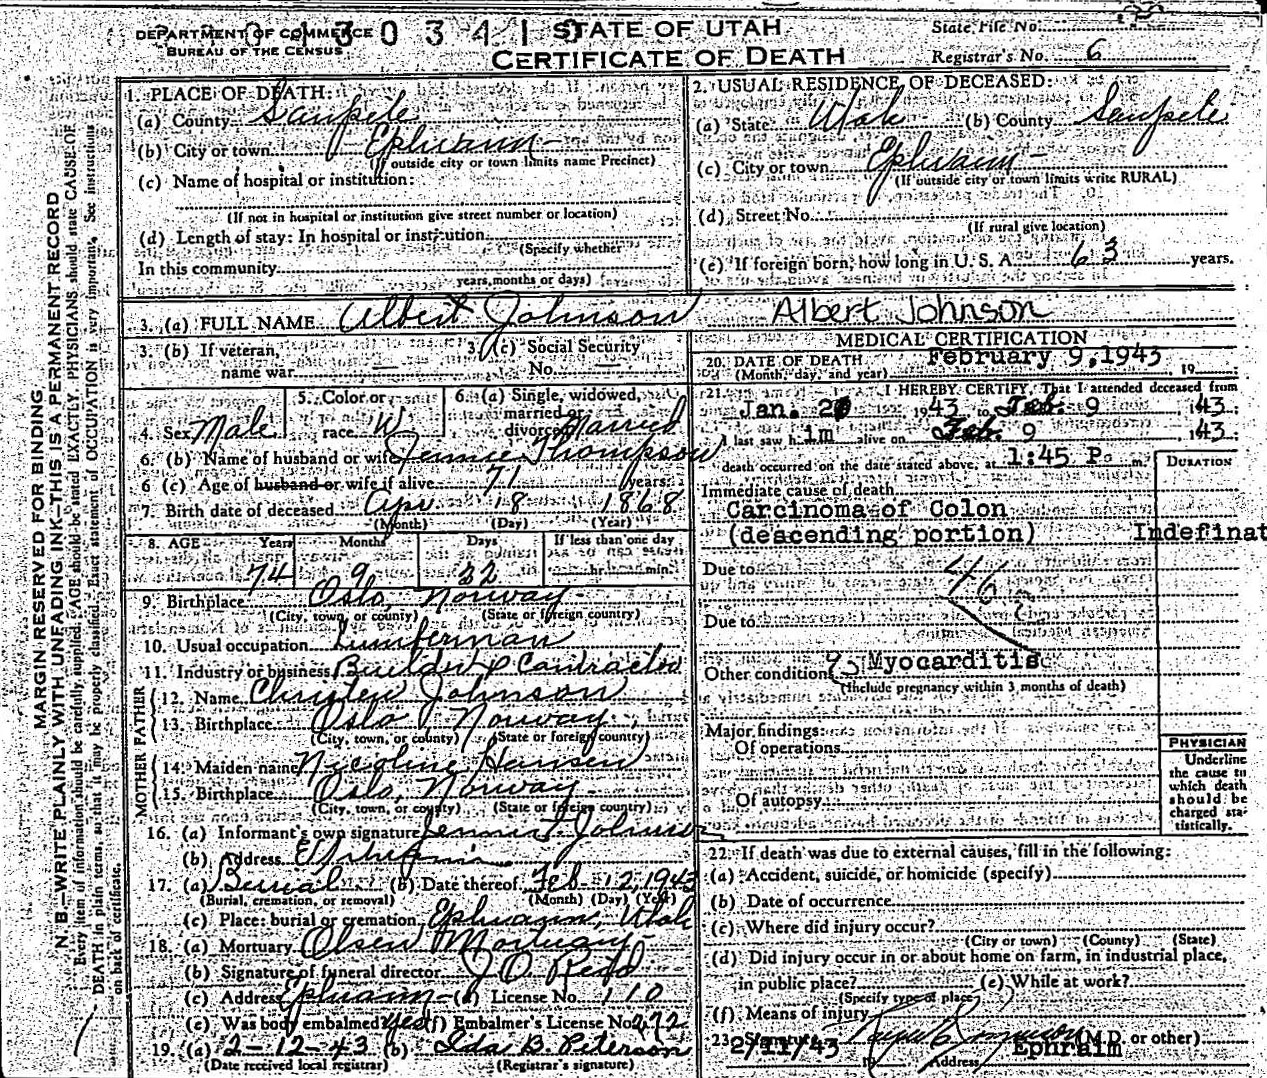 DEPARTMENT OF COMMERCE
BUREAU OF THE CENSUS
STATE OF UTAH
CERTIFICATE OF DEATH
State File No.
Registrar's No. 6
MARGIN RESERVED FOR BINDING
N. B.—WRITE PLAINLY WITH UNFADING INK—THIS IS A PERMANENT RECORD
Every item of information should be carefully supplied. AGE should be stated EXACTLY. PHYSICIANS should state CAUSE OF
DEATH in plain terms, so that it may be properly classified. Exact statement of OCCUPATION is very important. See instructions
on back of certificate.
1. PLACE OF DEATH:
(a) County Sanpete
(b) City or town Ephraim
(If outside city or town limits name Precinct)
(c) Name of hospital or institution:
(If not in hospital or institution give street number or location)
(d) Length of stay: In hospital or institution
(Specify whether
In this community
years, months or days)
2. USUAL RESIDENCE OF DECEASED:
(a) State Utah (b) County Sanpete
(c) City or town Ephraim
(If outside city or town limits write RURAL)
(d) Street No.
(If rural give location)
(e) If foreign born, how long in U. S. A. 63 years.
3. (a) FULL NAME Albert Johnson Albert Johnson
3. (b) If veteran, name war —
3. (c) Social Security No. —
4. Sex Male
5. Color or race W
6. (a) Single, widowed, married or divorced Married
6. (b) Name of husband or wife Jennie Thompson
6 (c) Age of husband or wife if alive 71 years
7. Birth date of deceased Apr. 18 1868
(Month) (Day) (Year)
8. AGE Years Months Days If less than one day
74 9 22 hr. min.
9. Birthplace Oslo, Norway
(City, town, or county) (State or foreign country)
10. Usual occupation Lumberman
11. Industry or business Builder & Contractor
FATHER
12. Name Christen Johnson
13. Birthplace Oslo, Norway
(City, town, or county) (State or foreign country)
MOTHER
14. Maiden name Nicoline Hansen
15. Birthplace Oslo, Norway
(City, town, or county) (State or foreign country)
16. (a) Informant's own signature Jennie T. Johnson
(b) Address Ephraim
17. (a) Burial (b) Date thereof Feb. 12, 1943
(Burial, cremation, or removal) (Month) (Day) (Year)
(c) Place: burial or cremation Ephraim, Utah
18. (a) Mortuary Olsen Mortuary
(b) Signature of funeral director
(c) Address Ephraim (d) License No. 110
(e) Was body embalmed yes (f) Embalmer's License No. 272
19. (a) 2-12-43 (b) Ida B. Peterson
(Date received local registrar) (Registrar's signature)
MEDICAL CERTIFICATION
20. DATE OF DEATH February 9, 1943 19
(Month, day, and year)
21. I HEREBY CERTIFY, That I attended deceased from
Jan. 1943 to Feb. 9 1943;
I last saw him alive on Feb. 9 1943;
death occurred on the date stated above, at 1:45 P. m.
DURATION
Immediate cause of death
Carcinoma of Colon
(descending portion) Indefinat
Due to
Due to
Other conditions Myocarditis
(Include pregnancy within 3 months of death)
Major findings:
Of operations
Of autopsy
PHYSICIAN
Underline
the cause to
which death
should be
charged sta-
tistically.
22. If death was due to external causes, fill in the following:
(a) Accident, suicide, or homicide (specify)
(b) Date of occurrence
(c) Where did injury occur?
(City or town) (County) (State)
(d) Did injury occur in or about home on farm, in industrial place,
in public place? (e) While at work?
(Specify type of place)
(f) Means of injury
23. Signature (M.D. or other)
2/11/43 19 Address Ephraim